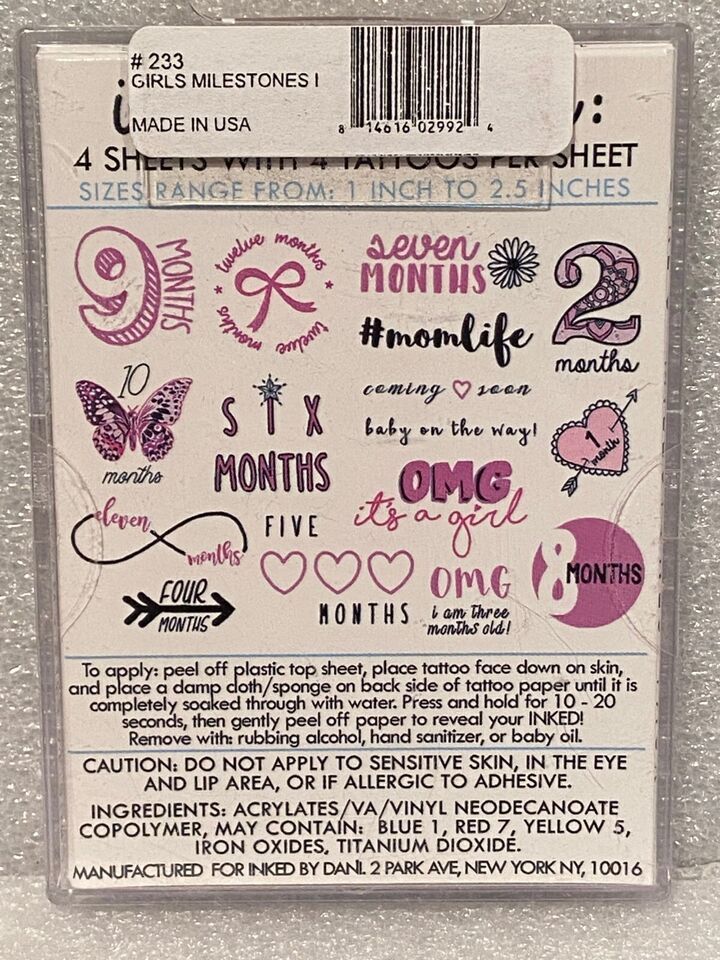 # 233
GIRLS MILESTONES I
MADE IN USA
8 14616 02992 4
4 SHEETS WITH 4 TATTOOS PER SHEET
SIZES RANGE FROM: 1 INCH TO 2.5 INCHES
9 MONTHS
twelve months
twelve months
seven
MONTHS
2
months
#momlife
10
months
SIX
MONTHS
coming soon
baby on the way!
1
month
OMG
it's a girl
eleven
months
FIVE
MONTHS
OMG
i am three
months old!
8 MONTHS
FOUR
MONTHS
To apply: peel off plastic top sheet, place tattoo face down on skin,
and place a damp cloth/sponge on back side of tattoo paper until it is
completely soaked through with water. Press and hold for 10 - 20
seconds, then gently peel off paper to reveal your INKED!
Remove with: rubbing alcohol, hand sanitizer, or baby oil.
CAUTION: DO NOT APPLY TO SENSITIVE SKIN, IN THE EYE
AND LIP AREA, OR IF ALLERGIC TO ADHESIVE.
INGREDIENTS: ACRYLATES/VA/VINYL NEODECANOATE
COPOLYMER, MAY CONTAIN: BLUE 1, RED 7, YELLOW 5,
IRON OXIDES, TITANIUM DIOXIDE.
MANUFACTURED FOR INKED BY DANI. 2 PARK AVE, NEW YORK NY, 10016